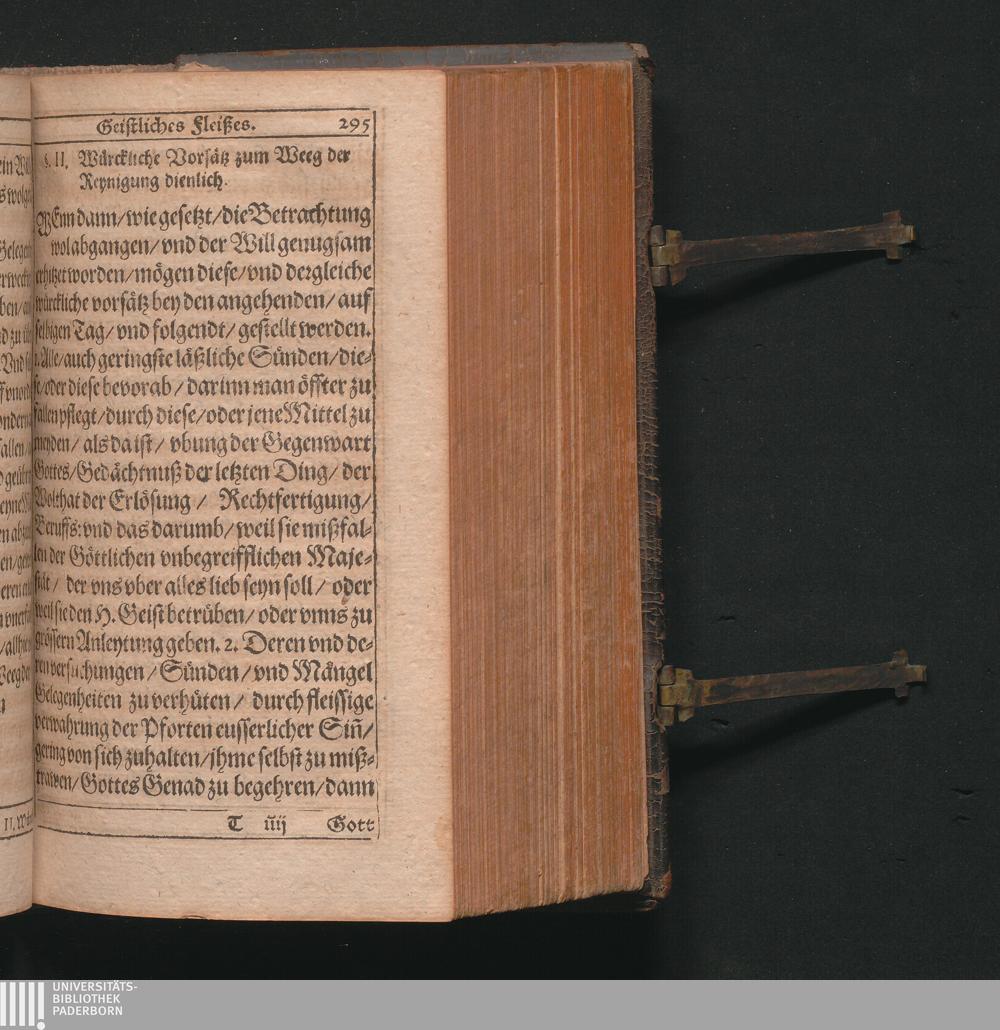 Geistliches Fleißes. 295
§. II. Würckliche Vorsätz zum Weeg der
Reynigung dienlich.
WEnn dann/wie gesetzt/die Betrachtung
wol abgangen/vnd der Will genugsam
erhitzet worden/mögen diese/vnd dergleiche
würckliche vorsätz bey den angehenden/auf
selbigen Tag/vnd folgendt/gestellt werden.
1. Alle/auch geringste läßliche Sünden/die-
se/oder diese bevorab/darinn man öffter zu
fallen pflegt/durch diese/oder jene Mittel zu
meyden/als da ist/vbung der Gegenwart
Gottes/Gedächtnuß der letzten Ding/der
Wolthat der Erlösung/Rechtfertigung/
Beruffs: vnd das darumb/weil sie mißfal-
len der Göttlichen vnbegreifflichen Maje-
stät/der vns vber alles lieb seyn soll/oder
weil sie den H. Geist betrüben/oder vnns zu
grössern Anleytung geben. 2. Deren vnd de-
ren versuchungen/Sünden/vnd Mängel
Gelegenheiten zu verhüten/durch fleissige
verwahrung der Pforten eusserlicher Siñ/
gering von sich zuhalten/jhme selbst zu miß-
trawen/Gottes Genad zu begehren/dann
T iiij Gott
UNIVERSITÄTS-
BIBLIOTHEK
PADERBORN